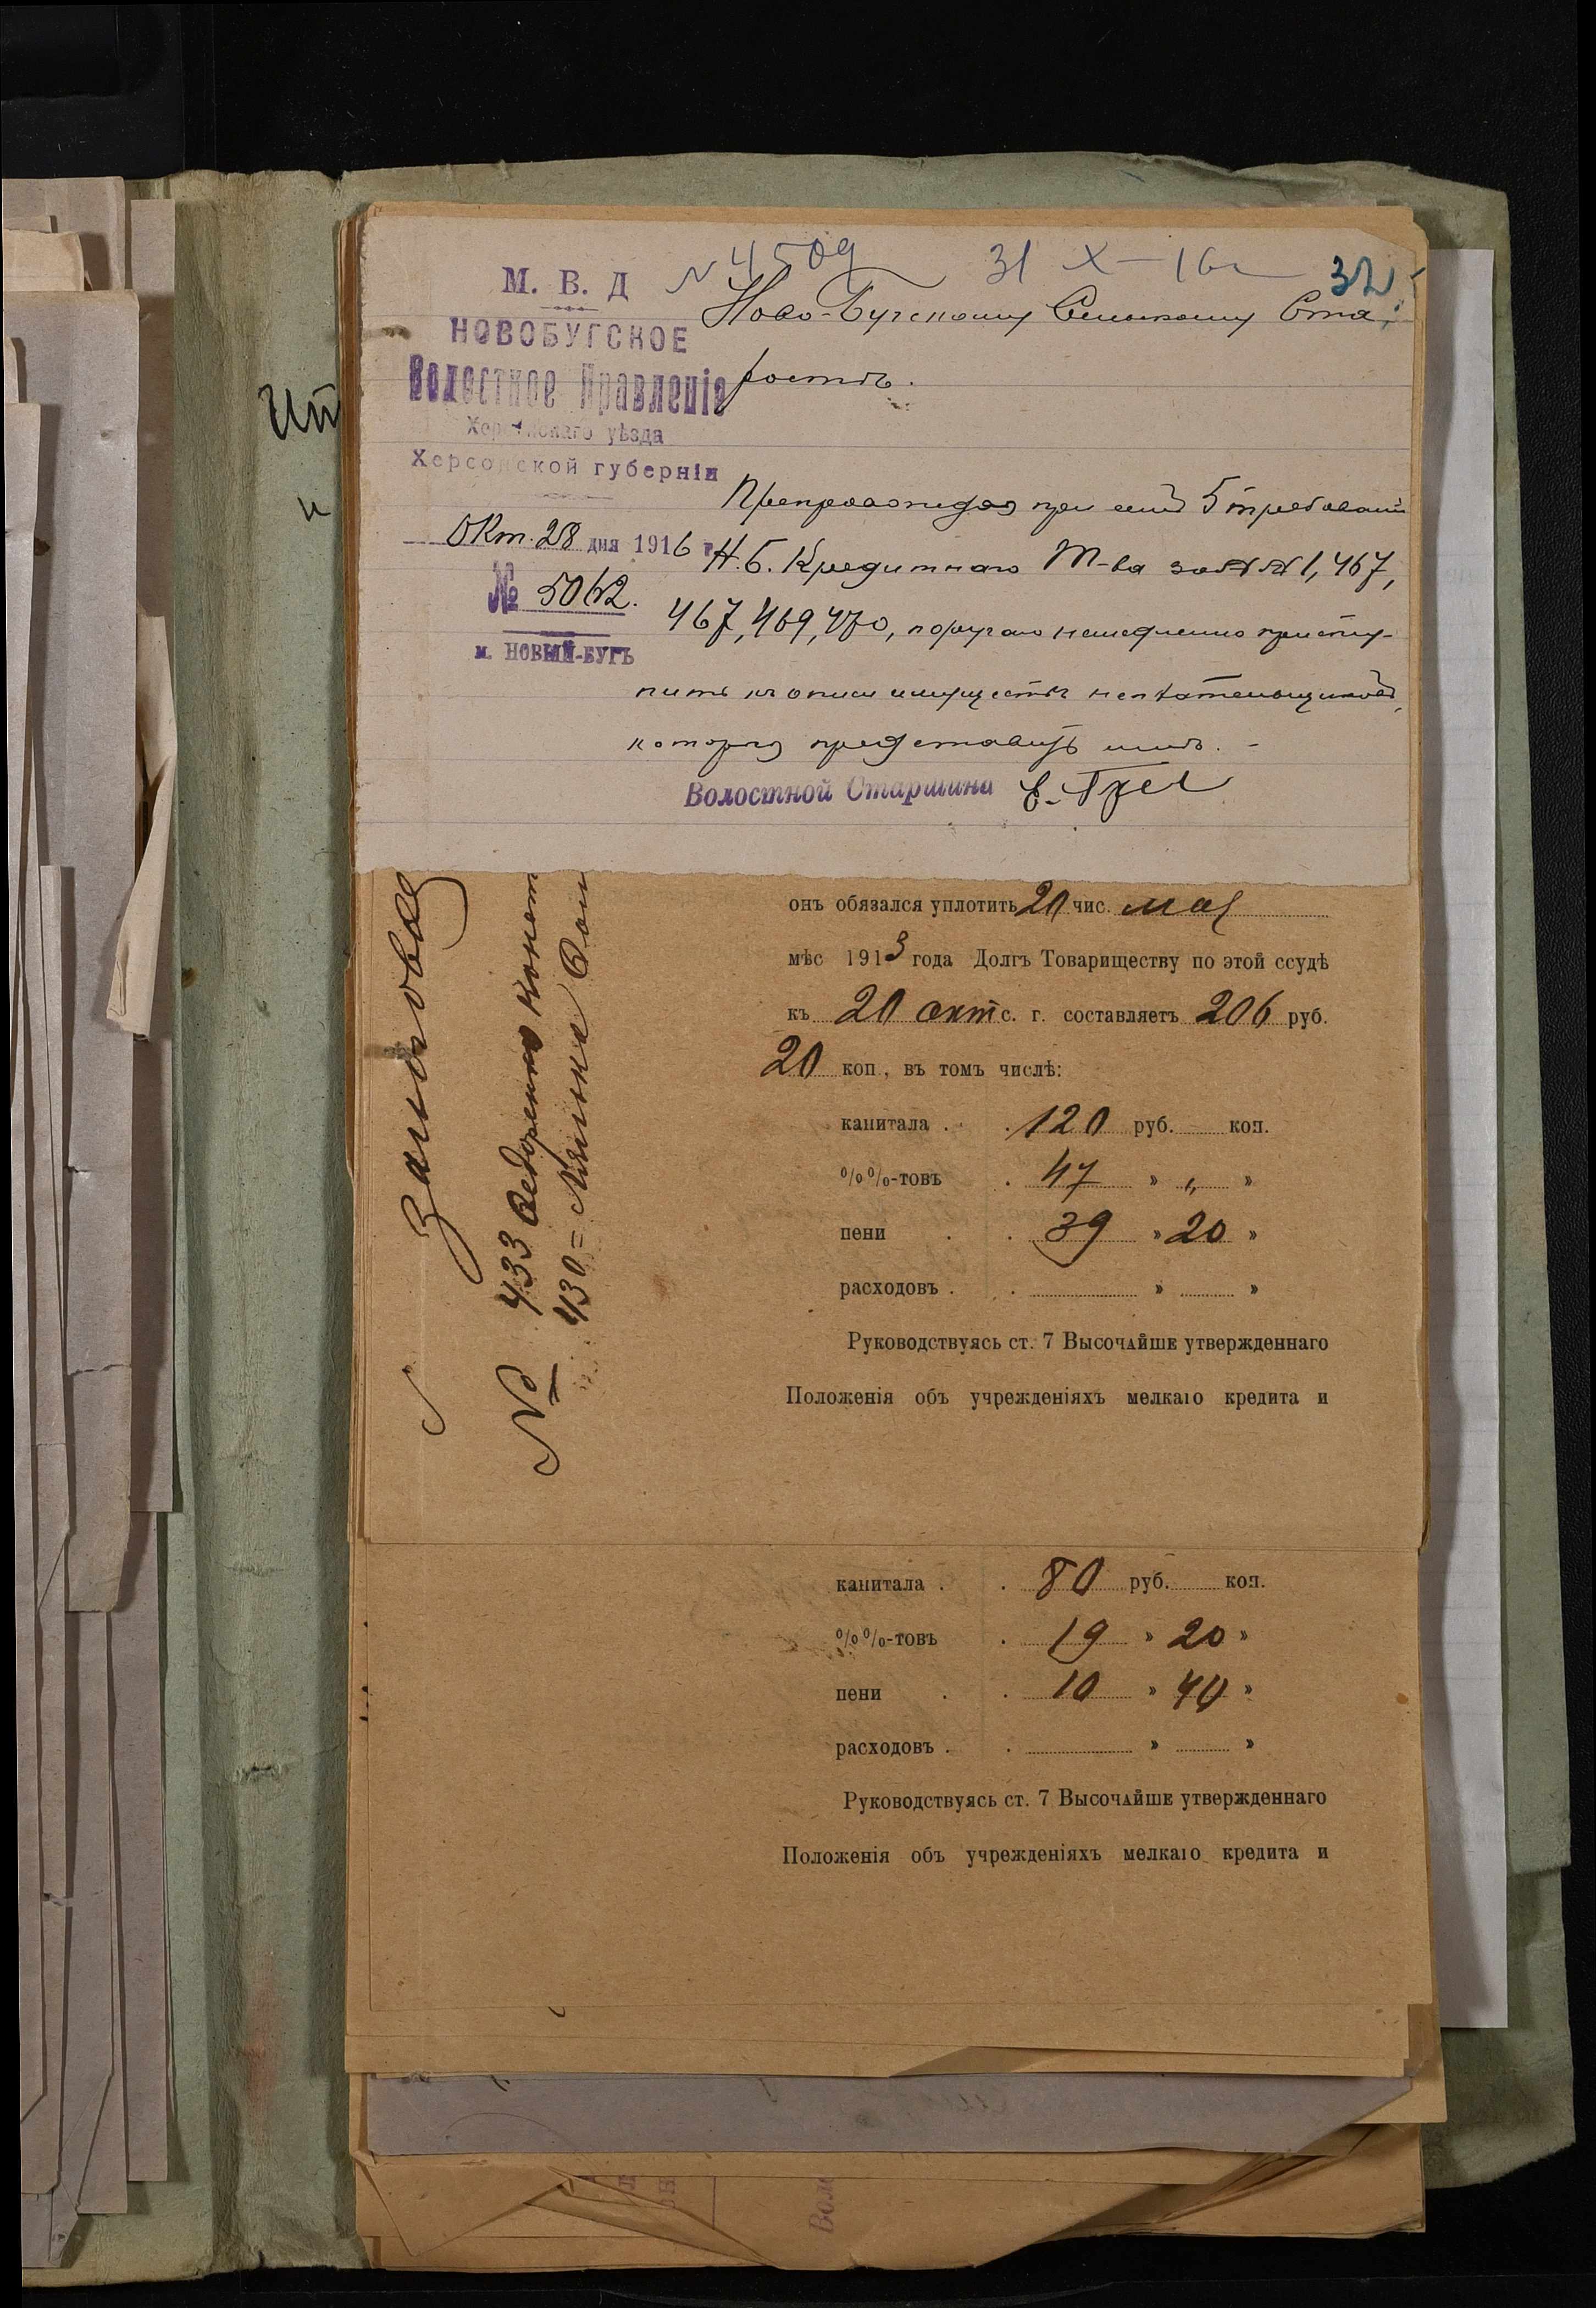 № 4509 31 X–16 г. 32
М. В. Д
НОВОБУГСКОЕ
Волостное Правленіе
Херсонскаго уѣзда
Херсонской губерніи
Окт. 28 дня 1916 г.
№ 5062.
м. НОВЫЙ-БУГЪ
Ново-Бугскому Сельскому Ста-
ростѣ.
Препровождая при семъ 5 требованій
Н.Б. Кредитнаго Т-ва за №№ 1, 467,
467, 469, 470, поручаю немедленно присту-
пить къ описи имуществъ неплательщиковъ,
которыя представить мнѣ. -
Волостной Старшина
онъ обязался уплотить 20 чис. мая
мѣс 1913 года Долгъ Товариществу по этой ссудѣ
къ 20 окт с. г. составляетъ 206 руб.
20 коп, въ томъ числѣ:
капитала . . 120 руб. коп.
%%-товъ . 47 » „ »
пени . . 39 » 20 »
расходовъ . . » »
Руководствуясь ст. 7 Высочайше утвержденнаго
Положенія объ учрежденіяхъ мелкаго кредита и
№ 433 Федоренко
430 =
капитала . . 80 руб. коп.
%%-товъ . 19 » 20 »
пени . . 10 » 40 »
расходовъ . . » »
Руководствуясь ст. 7 Высочайше утвержденнаго
Положенія объ учрежденіяхъ мелкаго кредита и